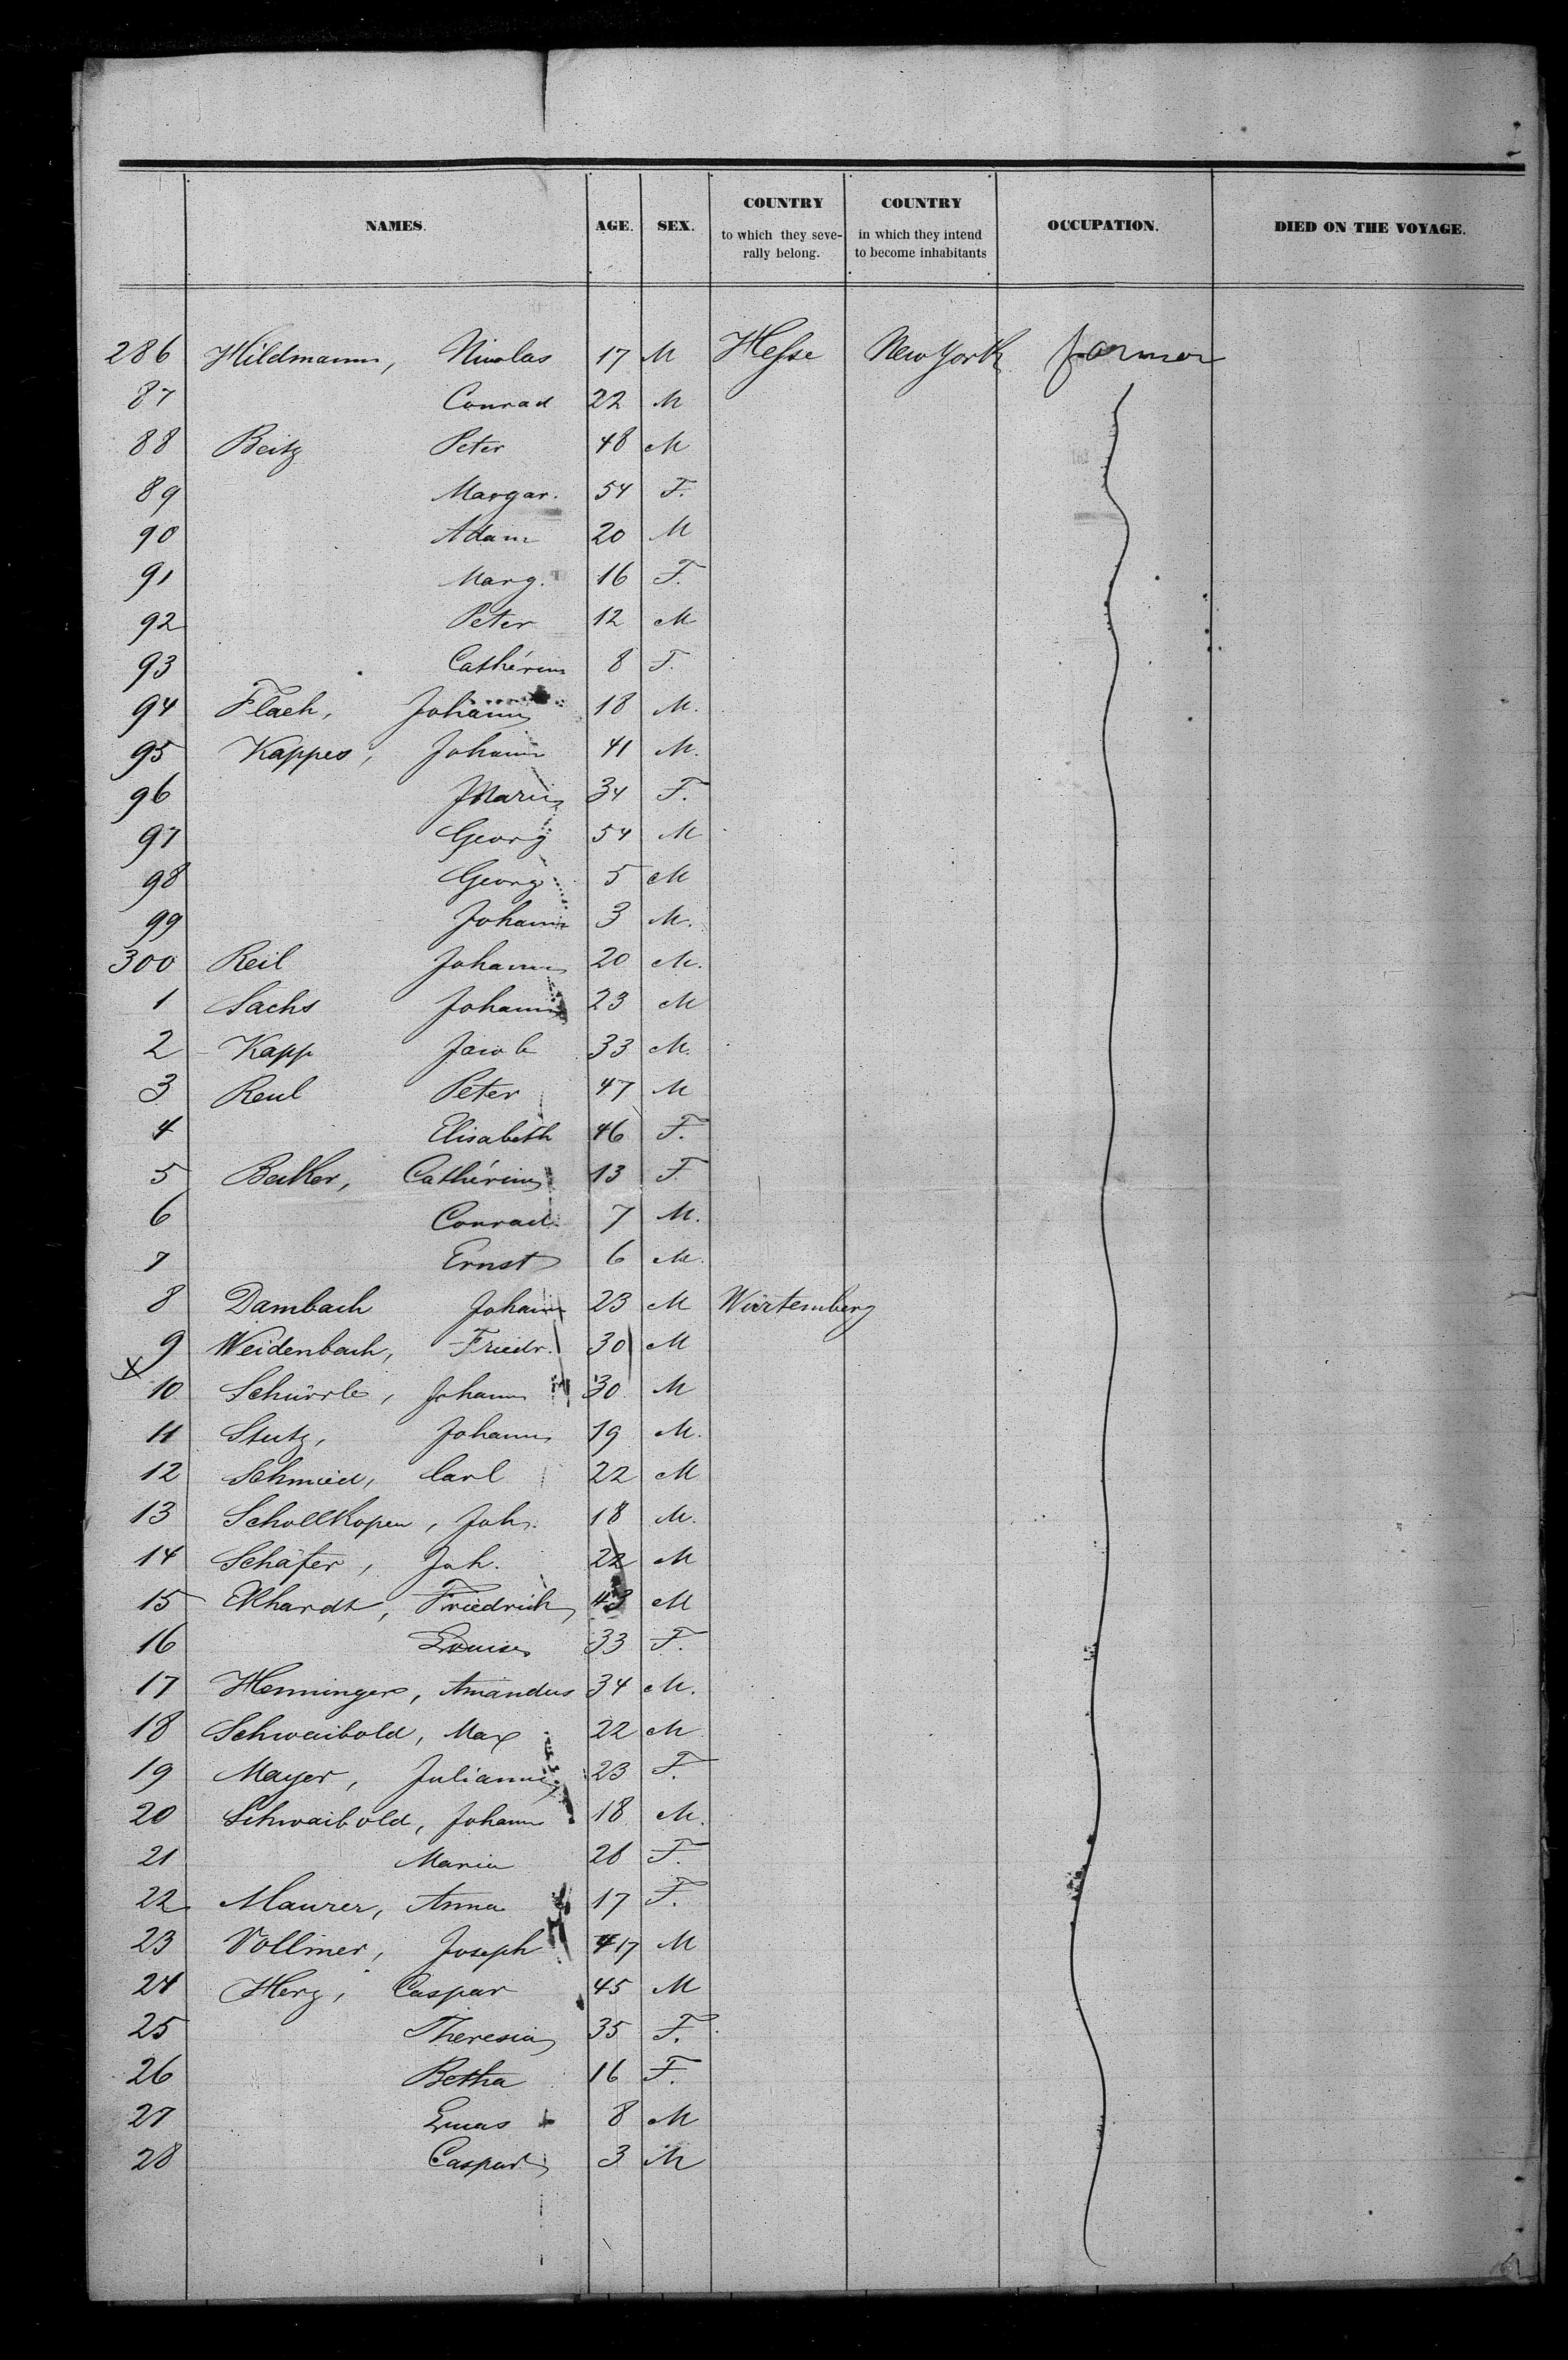 NAMES. AGE. SEX. COUNTRY to which they seve- rally belong. COUNTRY in which they intend to become inhabitants OCCUPATION. DIED ON THE VOYAGE.
286 Hildmann, Nicolas 17 M Hesse New York farmer
87 Conrad 22 M
88 Beitz Peter 48 M
89 Margar. 54 F.
90 Adam 20 M
91 Marg. 16 F.
92 Peter 12 M
93 Cathérine 8 F.
94 Flach, Johann 18 M.
95 Kappes, Johann 41 M.
96 Marie 34 F.
97 Georg 54 M
98 Georg 5 M
99 Johann 3 M.
300 Reil Johann 20 M.
1 Sachs Johann 23 M
2 Kapp Jacob 33 M.
3 Reul Peter 47 M
4 Elisabeth 46 F.
5 Becker, Cathérine 13 F
6 Conrad 7 M.
7 Ernst 6 M.
8 Dambach Johann 23 M Würtemberg
9 Weidenbach, Friedr. 30 M
X 10 Schürrle, Johann 30 M
11 Stutz, Johann 19 M.
12 Schmied, Carl 22 M
13 Schollkopen, Joh. 18 M.
14 Schäfer, Joh. 22 M
15 Ekhardt, Friedrich 43 M
16 Louise 33 F.
17 Henninger, Amandus 34 M.
18 Schwaibold, Max 22 M
19 Mayer, Julianne 23 F.
20 Schwaibold, Johann 18 M.
21 Maria 26 F.
22 Maurer, Anna 17 F.
23 Vollmer, Joseph 17 M
24 Herz, Caspar 45 M
25 Theresia 35 F.
26 Betha 16 F.
27 8 M
28 Caspar 3 M